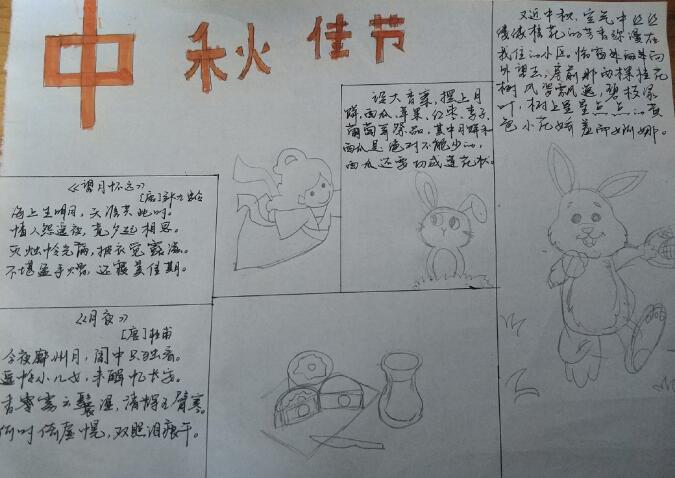 中秋佳节
又近中秋,空气中丝丝
缕缕桂花的芳香弥漫在
我住的小区。临窗外
外望去,房前那两棵桂花
树风姿飘逸,碧枝绿
叶,树上星星点点的黄
色小花娇羞而婀娜。
设大香案,摆上月
饼、西瓜、苹果、红枣、李子、
葡萄等祭品,其中月饼和
西瓜是绝对不能少的,
西瓜还要切成莲花状。
《望月怀远》
[唐]张九龄
海上生明月,天涯共此时。
情人怨遥夜,竟夕起相思。
灭烛怜光满,披衣觉露滋。
不堪盈手赠,还寝梦佳期。
《月夜》
[唐]杜甫
今夜鄜州月,闺中只独看。
遥怜小儿女,未解忆长安。
香雾云鬟湿,清辉玉臂寒。
何时倚虚幌,双照泪痕干。